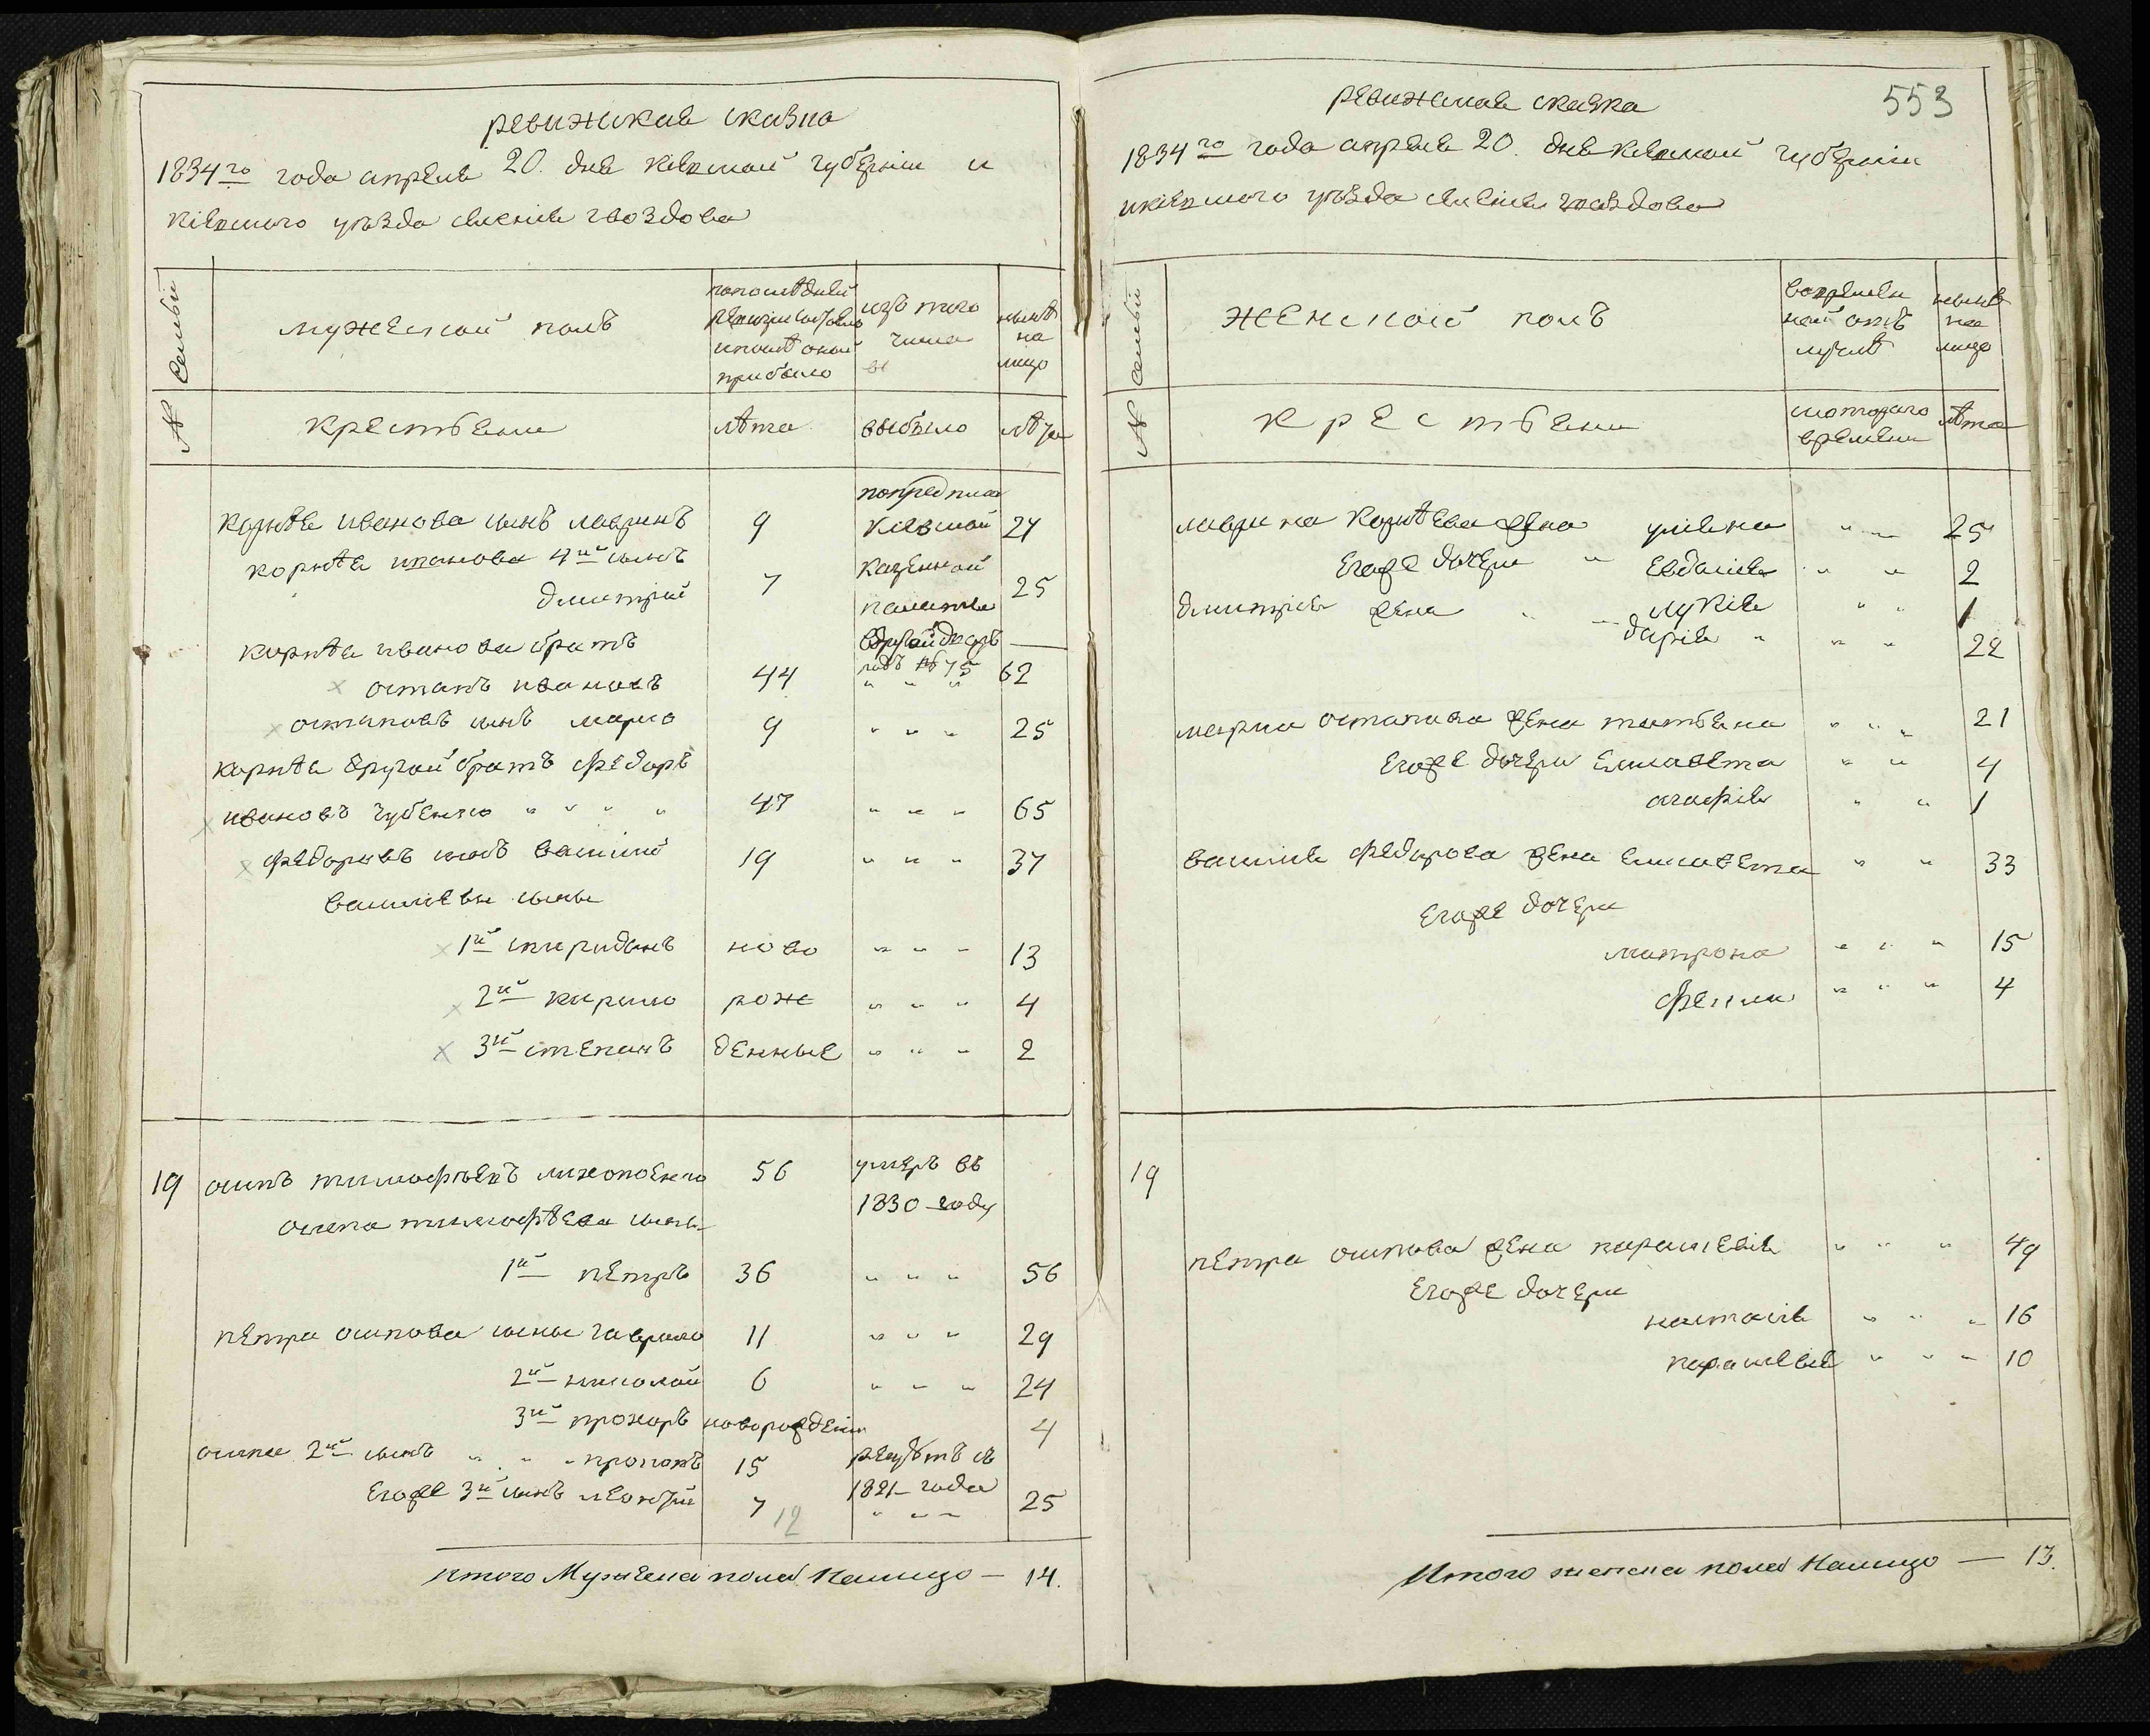 ревижская сказка
1834го года апреля 20. дня киевской губернии и
киевского уѣзда селения гвоздова
№ Семьи
мужеской полъ
попоследней ревизии состояло и после оной прибыло
изъ того числа
ныне на лицо
крестьяне
лѣта
выбыло
лѣта
попредписа
корнѣя иванова сынъ лавринъ 9 киевской 27
корнѣя иванова 4й сынъ казенной
дмитрій 7 палаты 25
корнѣя иванова братъ
остапъ ивановъ 44 " " " 62
остаповъ сынъ марко 9 " " " 25
корнѣя другой братъ федоръ
ивановъ губенко " " " " 47 " " " 65
федоровъ сынъ василий 19 " " " 37
василиевы сыны
1й спиридонъ ново " " " 13
2й кирило рож " " " 4
3й степанъ денные " " " 2
19 осипъ тимофѣевъ 56 умеръ въ
осипа тимофѣева сыны 1830 году
1й петръ 36 " " " 56
петра осипова сыны гаврило 11 " " " 29
2й николай 6 " " " 24
3й прохоръ новорожден 4
осипа 2й сынъ " " " прокопъ 15 рекрутъ съ
егоже 3й сынъ леонтий 7 1821 года 25
12 " " "
итого Мужеска пола Налицо — 14.
553
ревижская сказка
1834го года апреля 20. дня киевской губернии
икиевского уѣзда селения гвоздова
№ Семьи
женской полъ
вовременной отлучке
ныне на лицо
крестьяне
скоторого времени
лѣта
лаврина корнѣева жена улияна " " 25
егоже дочери " евдокия " " 2
лукия " " 1
дмитрия жена " дария " " " 22
марка остапова жена татьяна " " " 21
егоже дочери елисавета " " 4
агафия " " 1
василия федорова жена елисавета " " 33
егоже дочери
матрона " " " 15
фекла " " " 4
19
петра осипова жена параскевия " " " 49
егоже дочери
настасия " " " 16
параскевия " " " 10
Итого женска пола Налицо — 13.